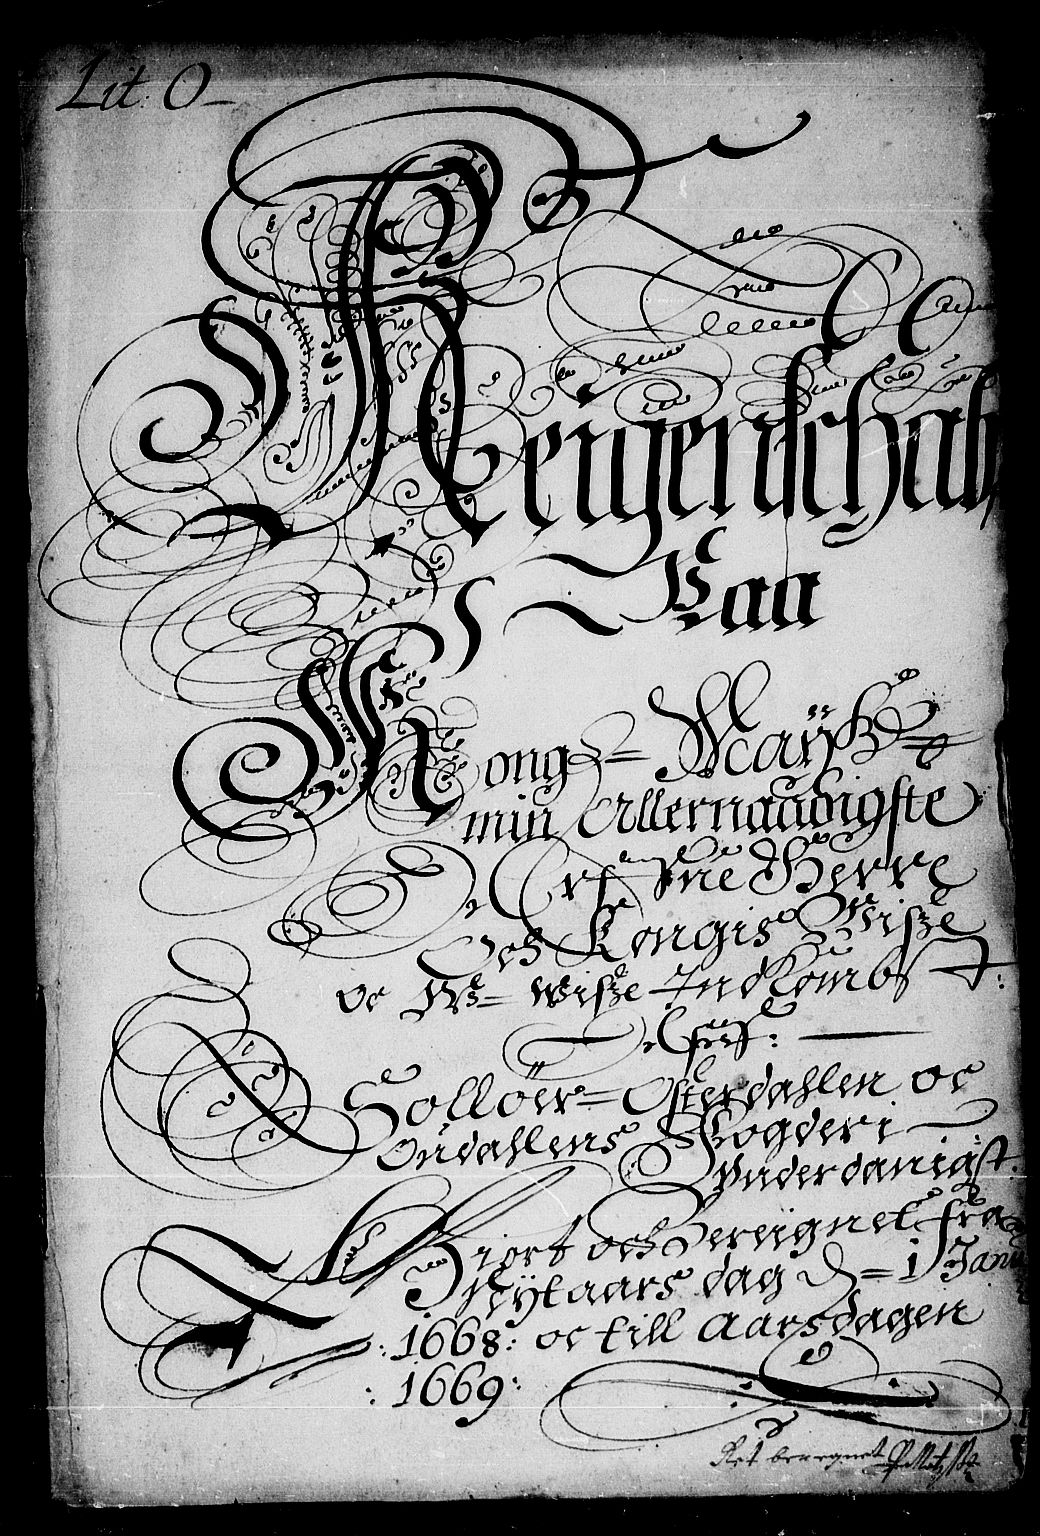 Lit: O
Reigenschab
Paa
Kong: Maÿtz
min Allernaadigste
Arfue Herre
och Kongis Wisze
oc Wisze Indkombst:
Aff:
Sollöer= Osterdahlen oc
Oudahlens Fogderi
Vnderdanigst.
Giort och Bereignet fra
Nÿtaars dag d= 1 Janu
:1668: oc till Aarsdagen
:1669:
Ret beregnet